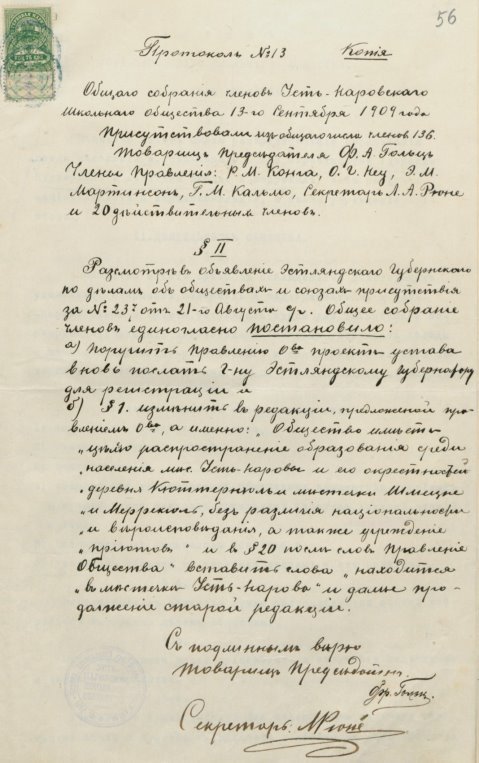 56
Протоколъ №13 Копія
Общаго собранія членовъ Усть-Наровскаго
Школьнаго Общества 13-го Сентября 1909 года
Присутствовали изъ общаго числа членов 136.
Товарищъ Предсѣдателя Ф. А. Гольцъ
Члены Правленія: Р. М. Конга, О. Г. Неу, Э. М.
Мартинсонъ, Г. М. Кальмо, Секретарь Л. А. Рюне
и 20 дѣйствительныхъ членовъ.
§ II
Разсмотрѣвъ объявленіе Эстляндскаго Губернскаго
по дѣламъ объ обществахъ и союзахъ присутствія
за № 237 отъ 21-го Августа с/г. Общее собраніе
членовъ единогласно постановило:
а) поручить правленію О-ва проектъ устава
вновь послать Г-ну Эстляндскому Губернатору
для регистраціи и
б) § 1. измѣнить въ редакціи, предложеной пра-
вленіемъ О-ва, а именно: „Общество имѣетъ
„цѣлью распространеніе образованія среди
„населенія мѣс. Усть-Наровы и его окрестностей
„деревня Кюттеркюль и мѣстечки Шмецке
„и Меррекюль, безъ различія національности
„и вѣроисповѣданія, а также учрежденіе
„пріютовъ“ и въ § 20 послѣ словъ Правленіе
Общества“ вставить слова „находится
„въ мѣстечкѣ Усть-Нарова“ и далѣе про-
долженіе старой редакціи.
Съ подлиннымъ вѣрно
Товарищъ Предсѣдателя
Фр. Гольц
Секретарь: Рюне